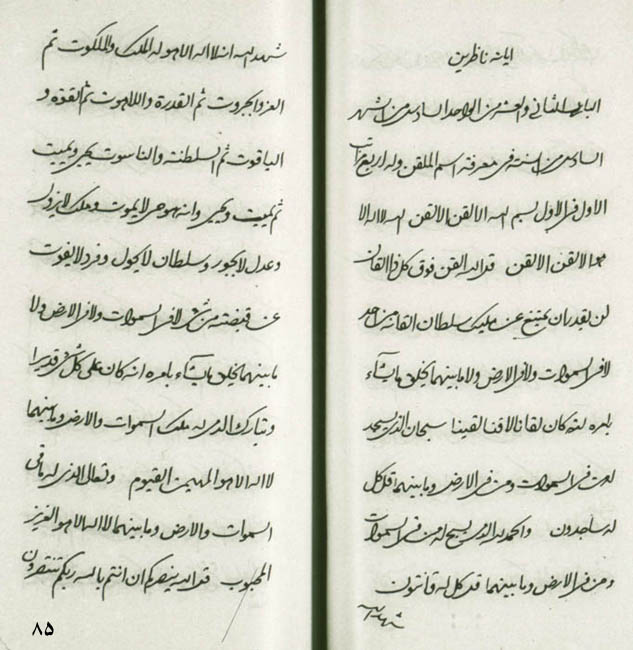 ایانه ناظرین
الباب الثانی والعشر من الواحد السادس من الشهر
السادس من السنة فی معرفة اسم الملقن وله اربع مراتب
الاول فی الاول بسم الله الالقن الالقن الله لا اله الا
هو الالقن الالقن قل الله القن فوق کل ذا القان
لن یقدر ان یمتنع عن ملیک سلطان القانه من احد
لا فی السموات ولا فی الارض ولا ما بینهما یخلق ما یشاء
بامره انه کان لقانا لاقنا لقینا سبحان الذی یسجد
له من فی السموات ومن فی الارض وما بینهما قل کل
له ساجدون والحمد لله الذی یسبح له من فی السموات
ومن فی الارض وما بینهما قل کل له قانتون
شهد الله
شهد الله انه لا اله الا هو له الملک والملکوت ثم
العز والجبروت ثم القدرة واللاهوت ثم القوة و
الیاقوت ثم السلطنة والناسوت یحیی ویمیت
ثم یمیت ویحیی وانه هو حی لا یموت وملک لا یزول
وعدل لا یجور وسلطان لا یحول وفرد لا یفوت
عن قبضته من شی لا فی السموات ولا فی الارض ولا
ما بینهما یخلق ما یشاء بامره انه کان علی کل شی قدیرا
وتبارک الذی له ملک السموات والارض وما بینهما
لا اله الا هو المهیمن القیوم وتعالی الذی له ما فی
السموات والارض وما بینهما لا اله الا هو العزیز
المحبوب قل الله ینصرکم ان انتم بالله ربکم تنتصرون
۸۵